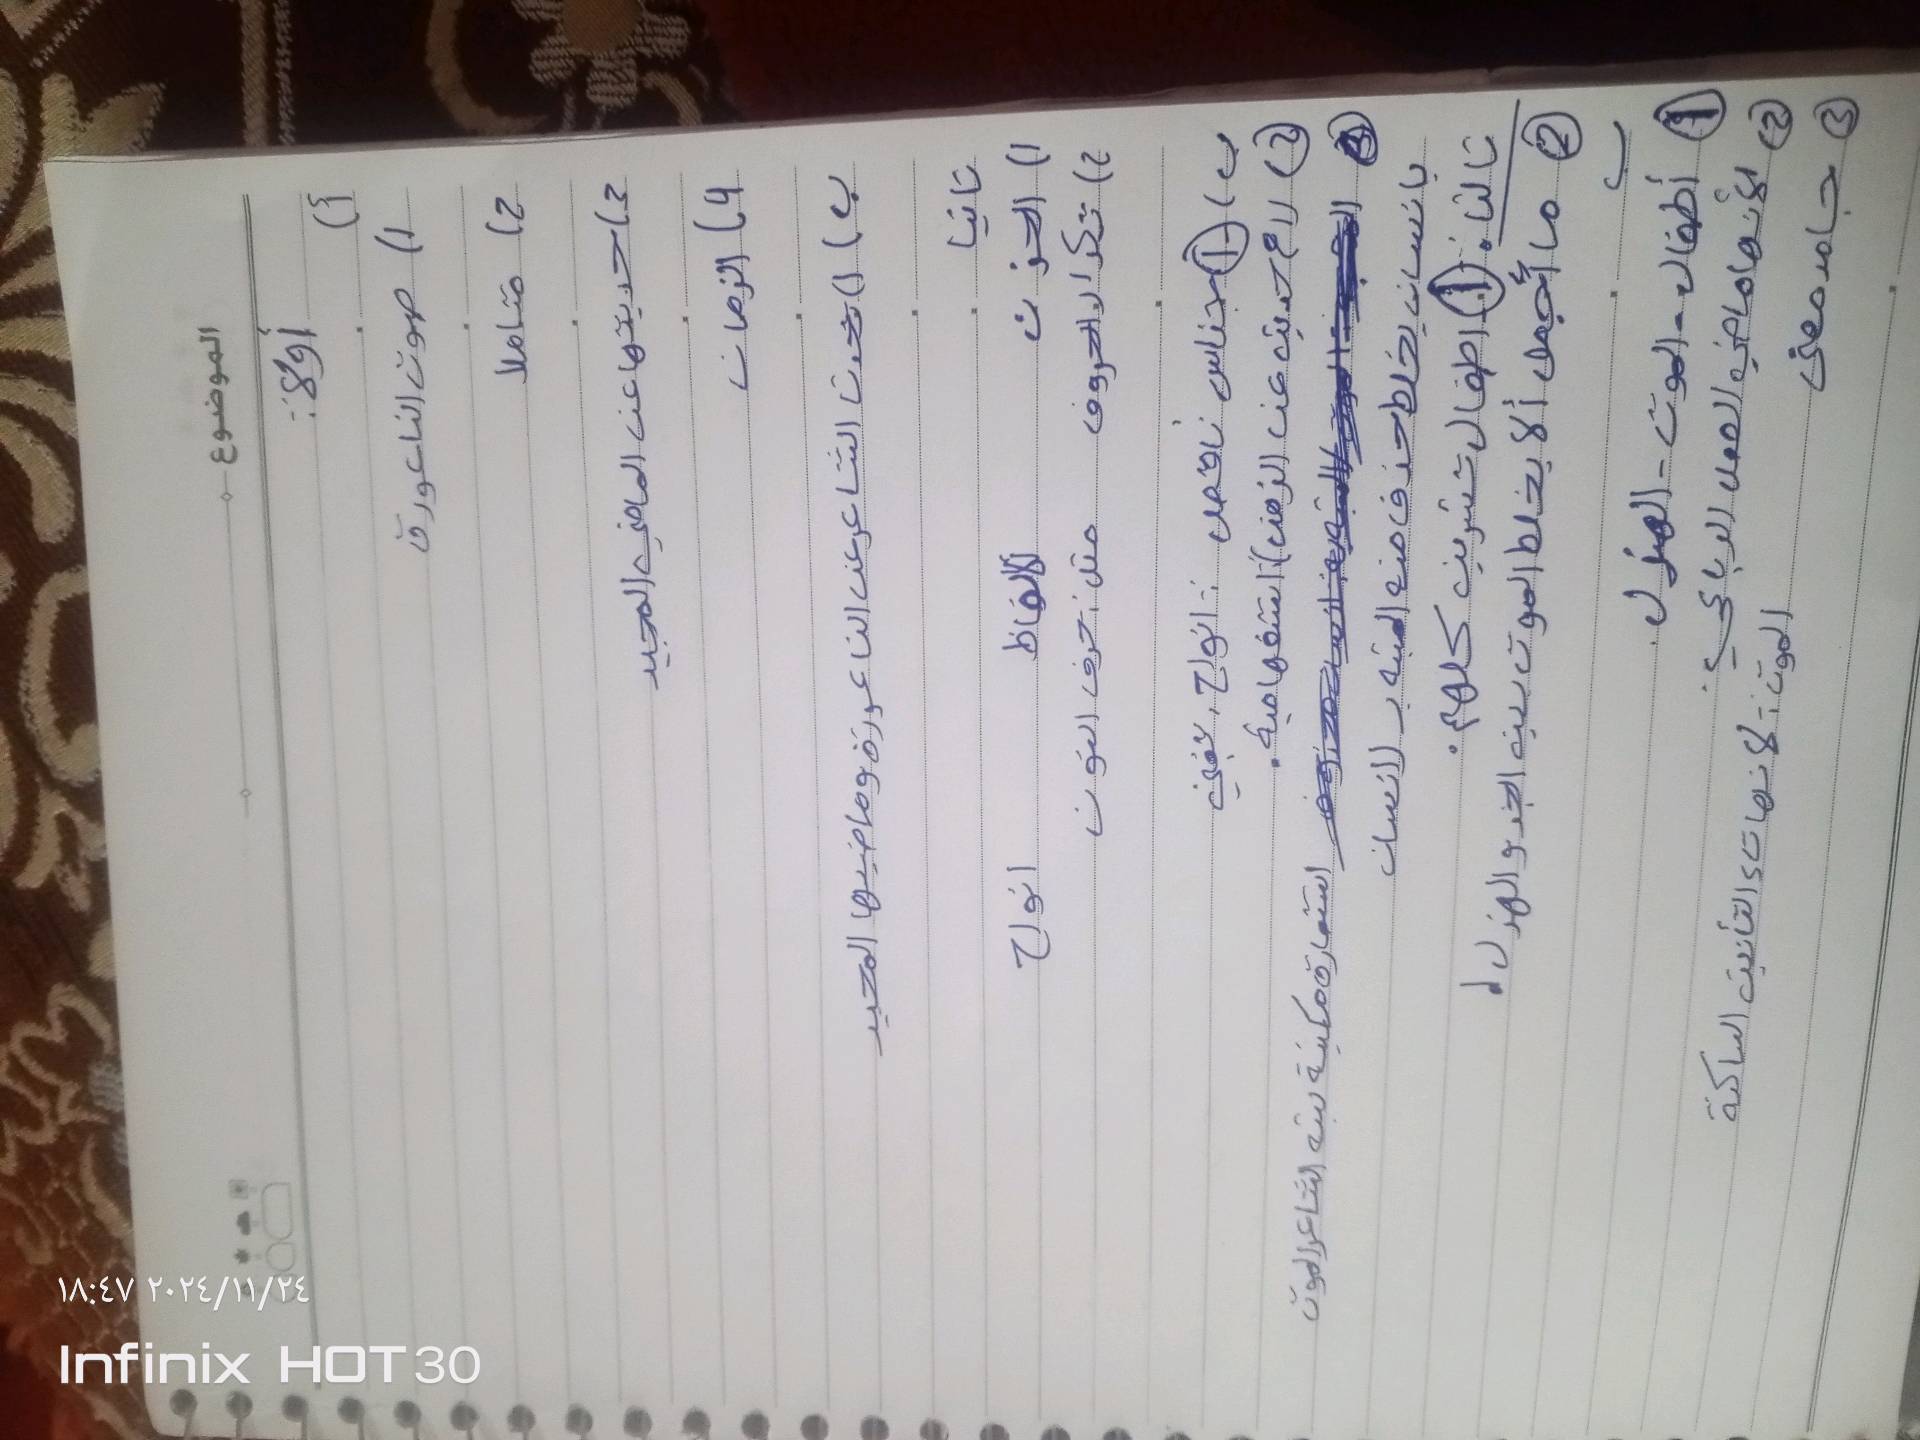 الموضوع
أولاً:
أ)
1) صوت الناعورة
2) متاملا
3) حديثها عن الماضي المجيد
4) الزمان
ب) 1) تحدث الشاعر عن الناعورة وماضيها المجيد
ثانيا
1) الحزن الألفاظ انواح
2) تكرار الحروف مثل: حرف النون
ب) 1 جناس ناقص: انواح، تفني
2) لاع حديثه عن الزمن) استفهامية.
استعارة مكنية شبه الشاعر الموت
بانسان يخلط حذف منه المشبه به الانسان
ثالثا: 1 اطفال تشرين كلهم.
2 ما أجمل ألا يخلط الموت بين الجد والهزل!
ب
1 أطفال - الموت - الهزل
2 لأنها ماضي العمل الرباعي. الموت: لانها تاء التأنيث الساكنة
3 جامد معنى
١٨:٤٧ ٢٠٢٤/١١/٢٤
Infinix HOT 30